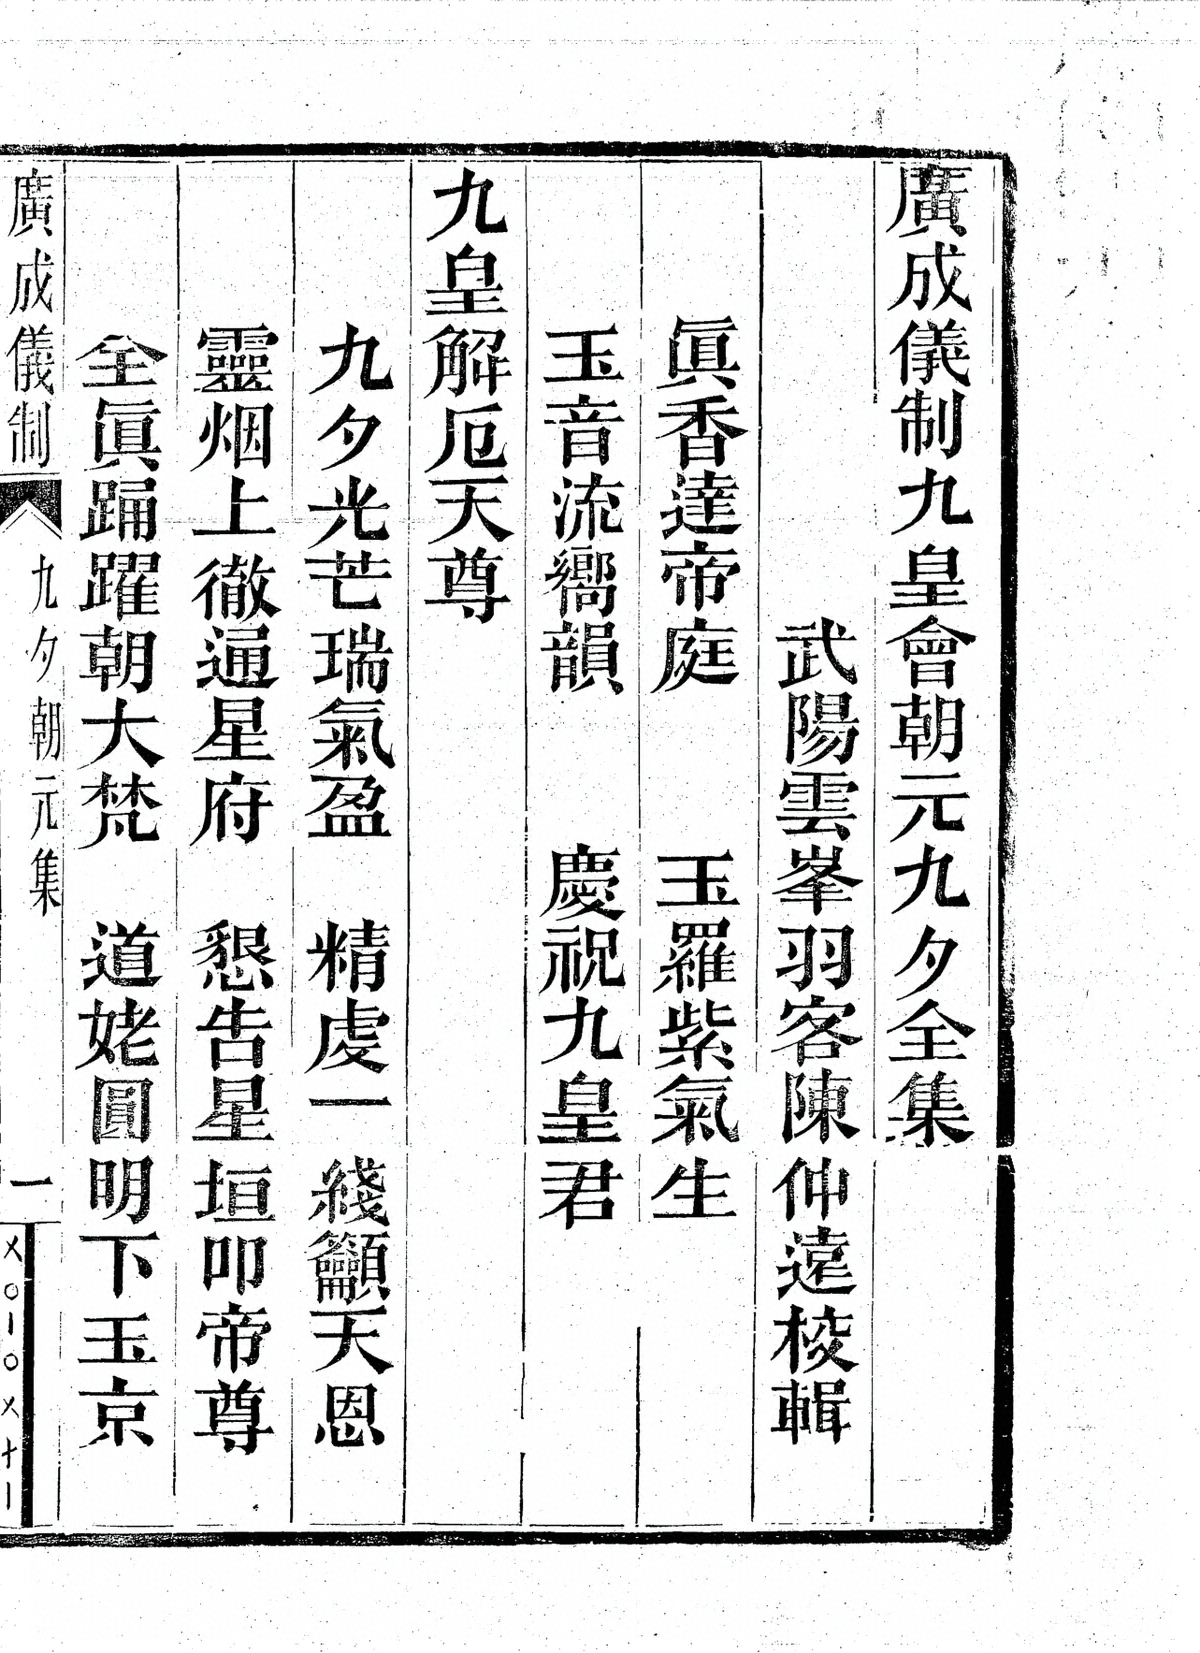 廣成儀制九皇會朝元九夕全集
武陽雲峯羽客陳仲遠校輯
眞香達帝庭　玉羅紫氣生
玉音流嚮韻　慶祝九皇君
九皇解厄天尊
九夕光芒瑞氣盈　精虔一綫籲天恩
靈烟上徹通星府　懇告星垣叩帝尊
全眞踊躍朝大梵　道姥圓明下玉京
廣成儀制　九夕朝元集　一